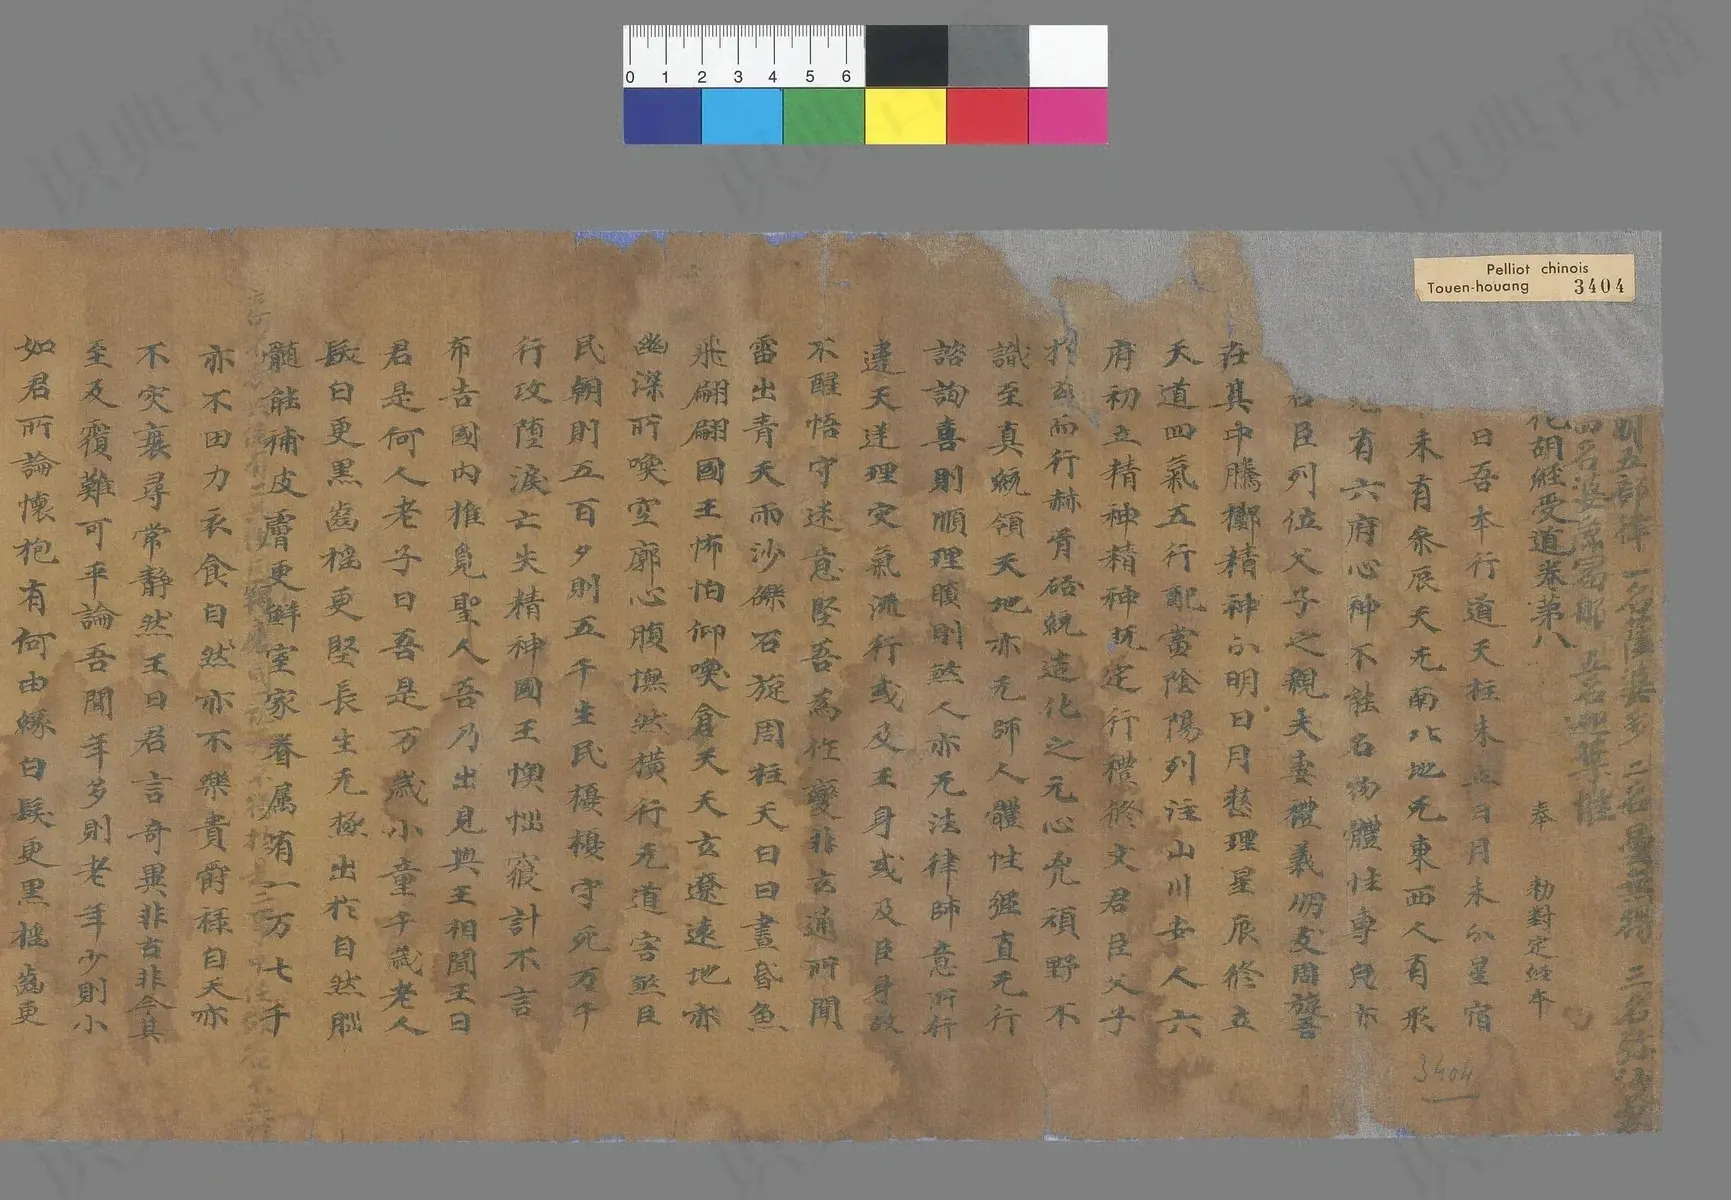 0 1 2 3 4 5 6
Pelliot chinois
Touen-houang 3404
別五部律 一名 二名曇無得 三名弥沙塞
四名婆 富郎 五名迦葉惟
化胡經受道卷第八 奉 勑對定經本
曰吾本行道天柱未立日月未分星宿
未有參辰天无南北地无東西人有形
有六府心神不能名物體性專
君臣列位父子之親夫妻禮義朋友周旋吾
在其中騰擲精神分明日月整理星辰修立
天道四氣五行配當陰陽列注山川安人六
府初立精神精神既定行禮修文君臣父子
而行赫胥 造化之元心 頑野不
識至真統領天地亦无師人體性經直无行
諮詢喜則順理瞋則煞人亦无法律師意所行
違天逆理灾氣流行或及王身或及臣身故
不醒悟守迷意堅吾為作變非玄通所聞
雷出青天雨沙礫石旋周柱天白日晝昏魚
飛翩翩國王怖怕仰喚倉天天玄遼遠地亦
幽深所喚空廓心腹憮然橫行无道害煞臣
民朝則五百夕則五千生民擾擾守死万千
行攻墮淚亡失精神國王懊惱窮計不言
布告國內推覓聖人吾乃出見與王相聞王曰
君是何人老子曰吾是万歲小童千歲老人
髮白更黑齒槁更堅長生无極出於自然腦
髓能補皮膚更鮮室家眷属有一万七千
亦不田力衣食自然亦不樂貴爵祿自天亦
不灾襄尋常靜然王曰君言奇異非古非今其
至及覆難可平論吾聞年多則老年少則小
如君所論懷抱有何由緣白髮更黑槁齒更
3404
识典古籍